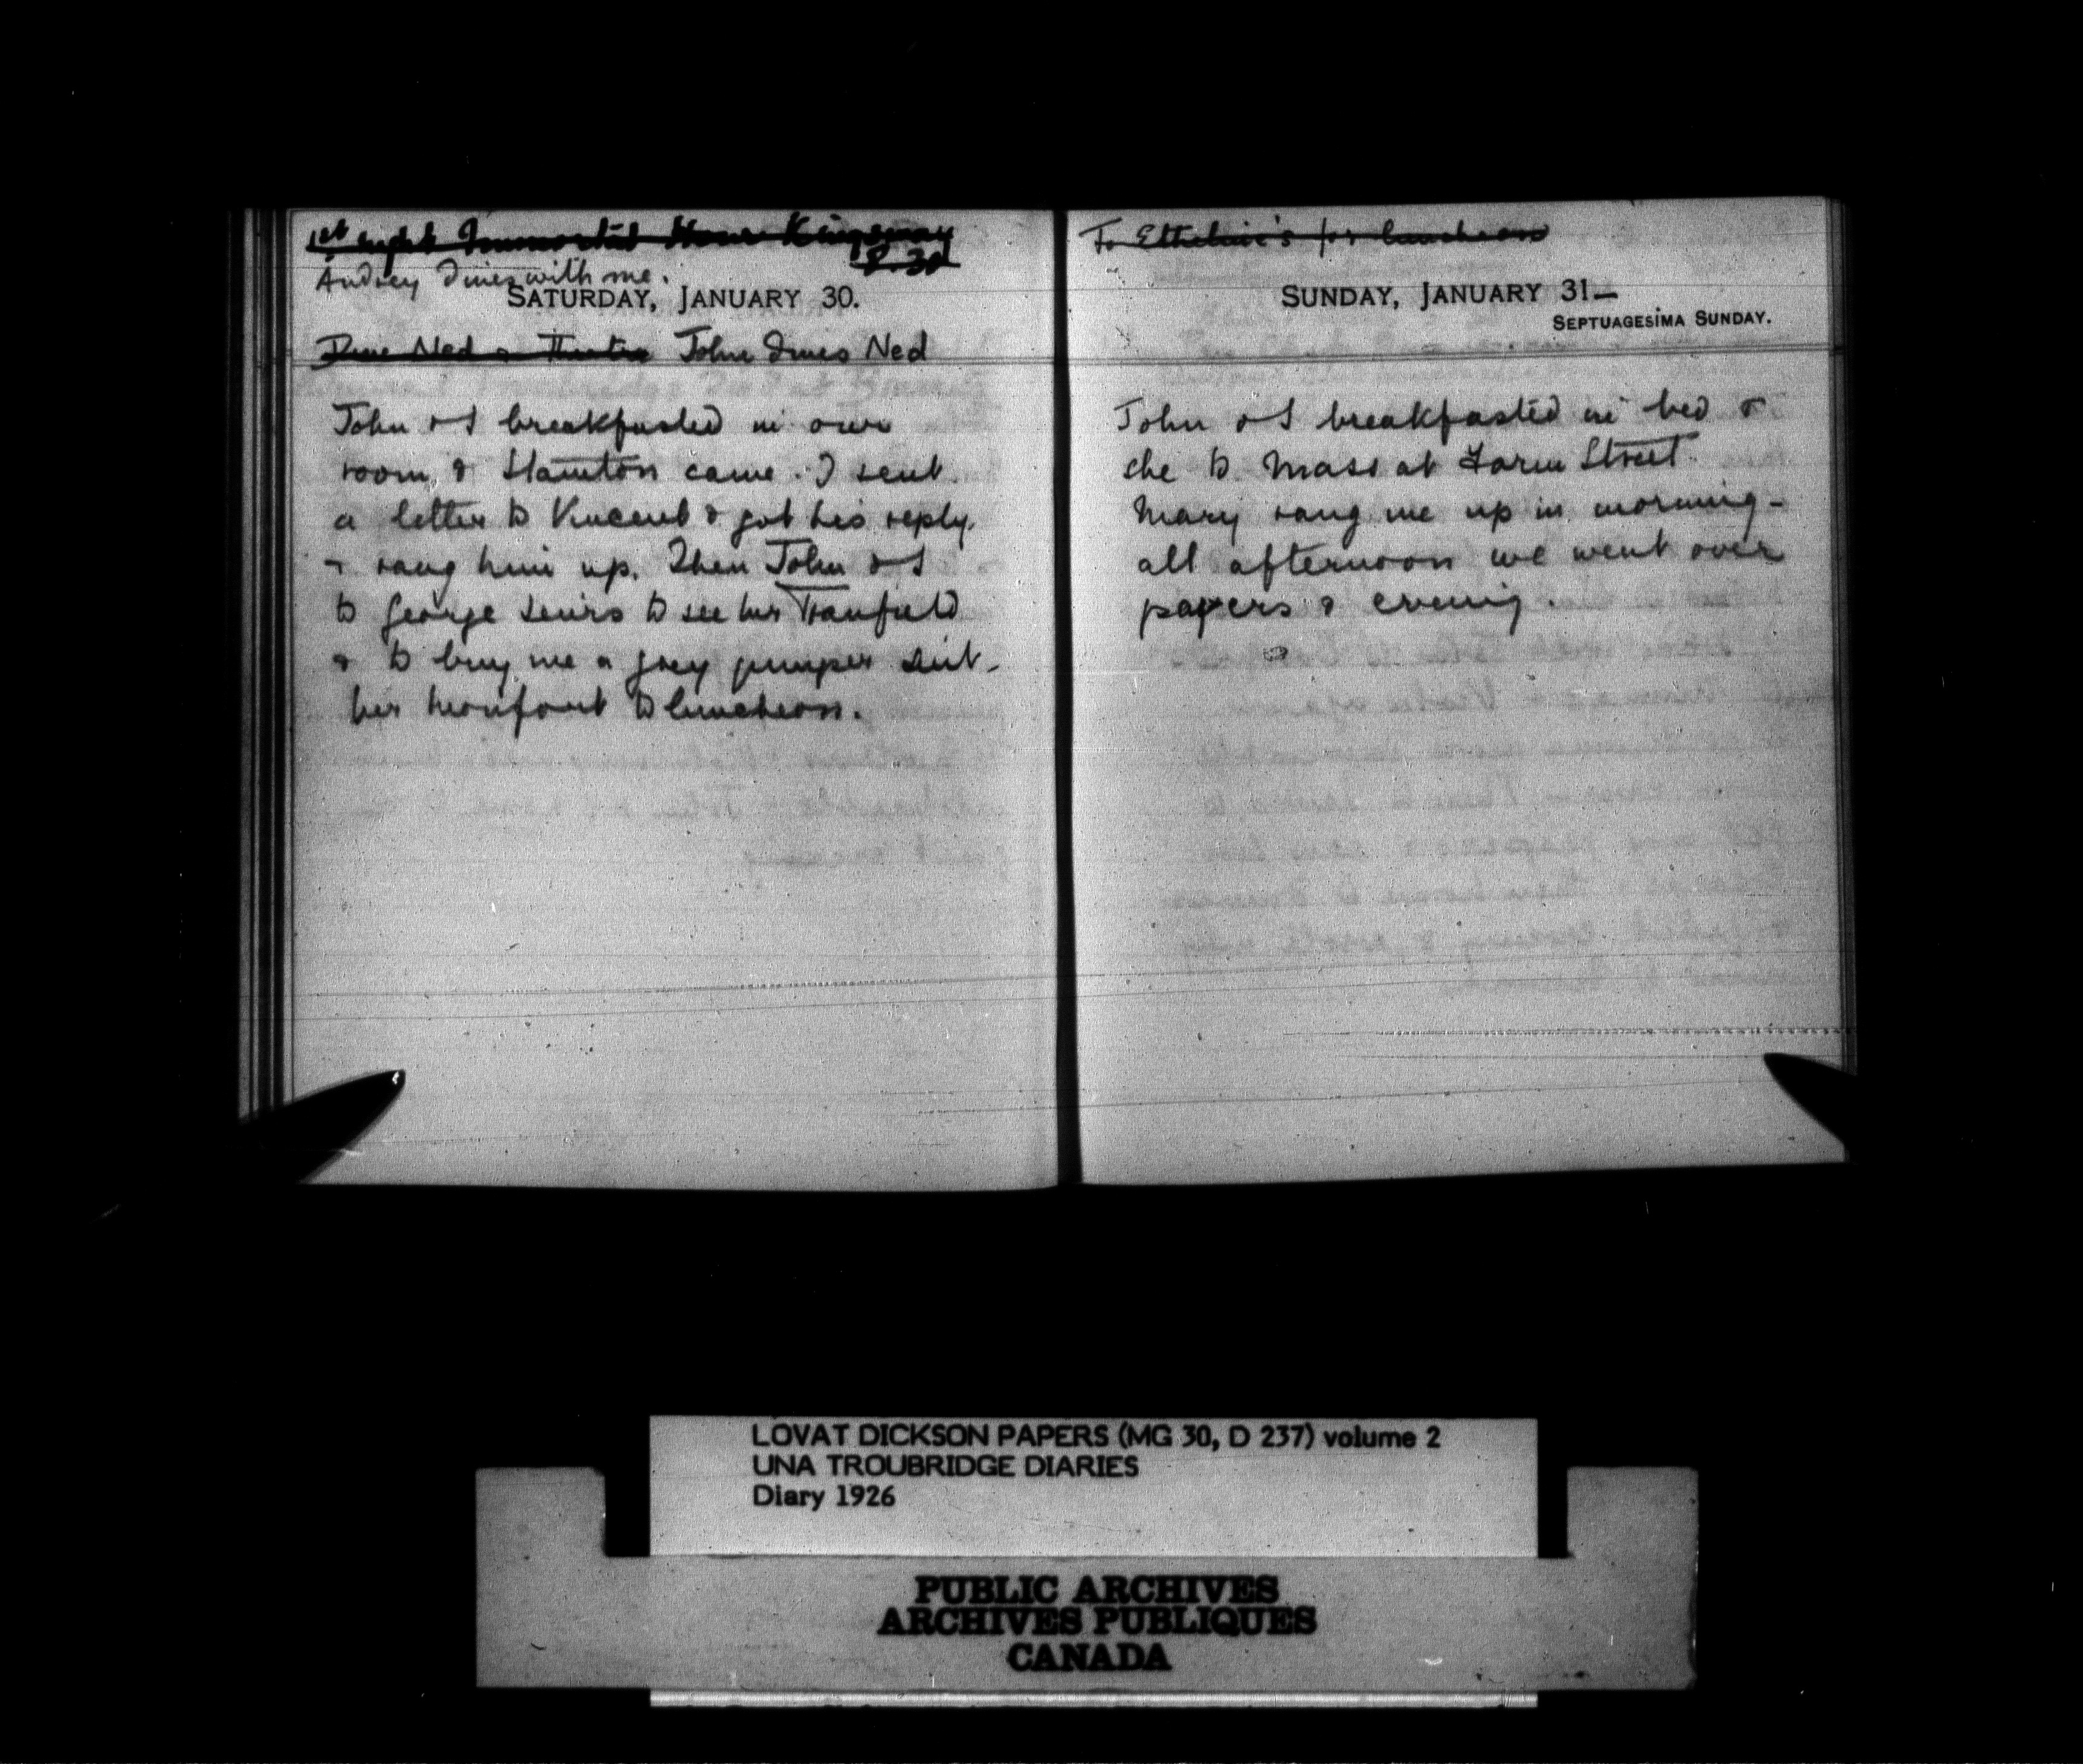 1st night Immortal Hour Kingsway
8.30
Audrey dines with me.
SATURDAY, JANUARY 30.
Dine Ned & Theatre John dines Ned
John & I breakfasted in our
room, & Stanton came. I sent
a letter to Vincent & got his reply,
& rang him up. Then John & I
to George Lewis to see Mr Tranfield
& to buy me a grey jumper suit.
Mrs Monfort to luncheon.
To Etheline's for luncheon
SUNDAY, JANUARY 31
SEPTUAGESIMA SUNDAY.
John & I breakfasted in bed &
she to Mass at Farm Street.
Mary rang me up in morning -
all afternoon we went over
papers & evening.
LOVAT DICKSON PAPERS (MG 30, D 237) volume 2
UNA TROUBRIDGE DIARIES
Diary 1926
PUBLIC ARCHIVES
ARCHIVES PUBLIQUES
CANADA